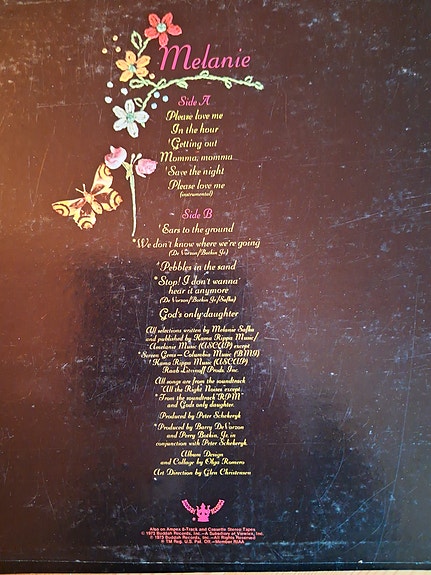 Melanie
Side A
Please love me
In the hour
'Getting out
Momma, momma
'Save the night
Please love me
(instrumental)
Side B
'Ears to the ground
*We don't know where we're going
(De Vorzon/Botkin Jr)
'Pebbles in the sand
*Stop! I don't wanna
hear it anymore
(De Vorzon/Botkin Jr/Safka)
God's only daughter
All selections written by Melanie Safka
and published by Kama Rippa Music/
Amelanie Music (ASCAP) except
*Screen Gems—Columbia Music (BMI)
'Kama Rippa Music (ASCAP)
Prods. Inc.
All songs are from the soundtrack
"All the Right Noises" except:
*From the soundtrack "RPM"
and Gods only daughter.
Produced by Peter Schekeryk
*Produced by Barry DeVorzon
and Perry Botkin, Jr. in
conjunction with Peter Schekeryk
Album Design
and Collage by Olga Romero
Art Direction by Glen Christensen
Also on Ampex 8-Track and Cassette Stereo Tapes
© 1973 Buddah Records, Inc.—A Subsidiary of Viewlex, Inc.
℗ 1973 Buddah Records, Inc.—All Rights Reserved
® TM Reg. U.S. Pat. Off.—Member RIAA